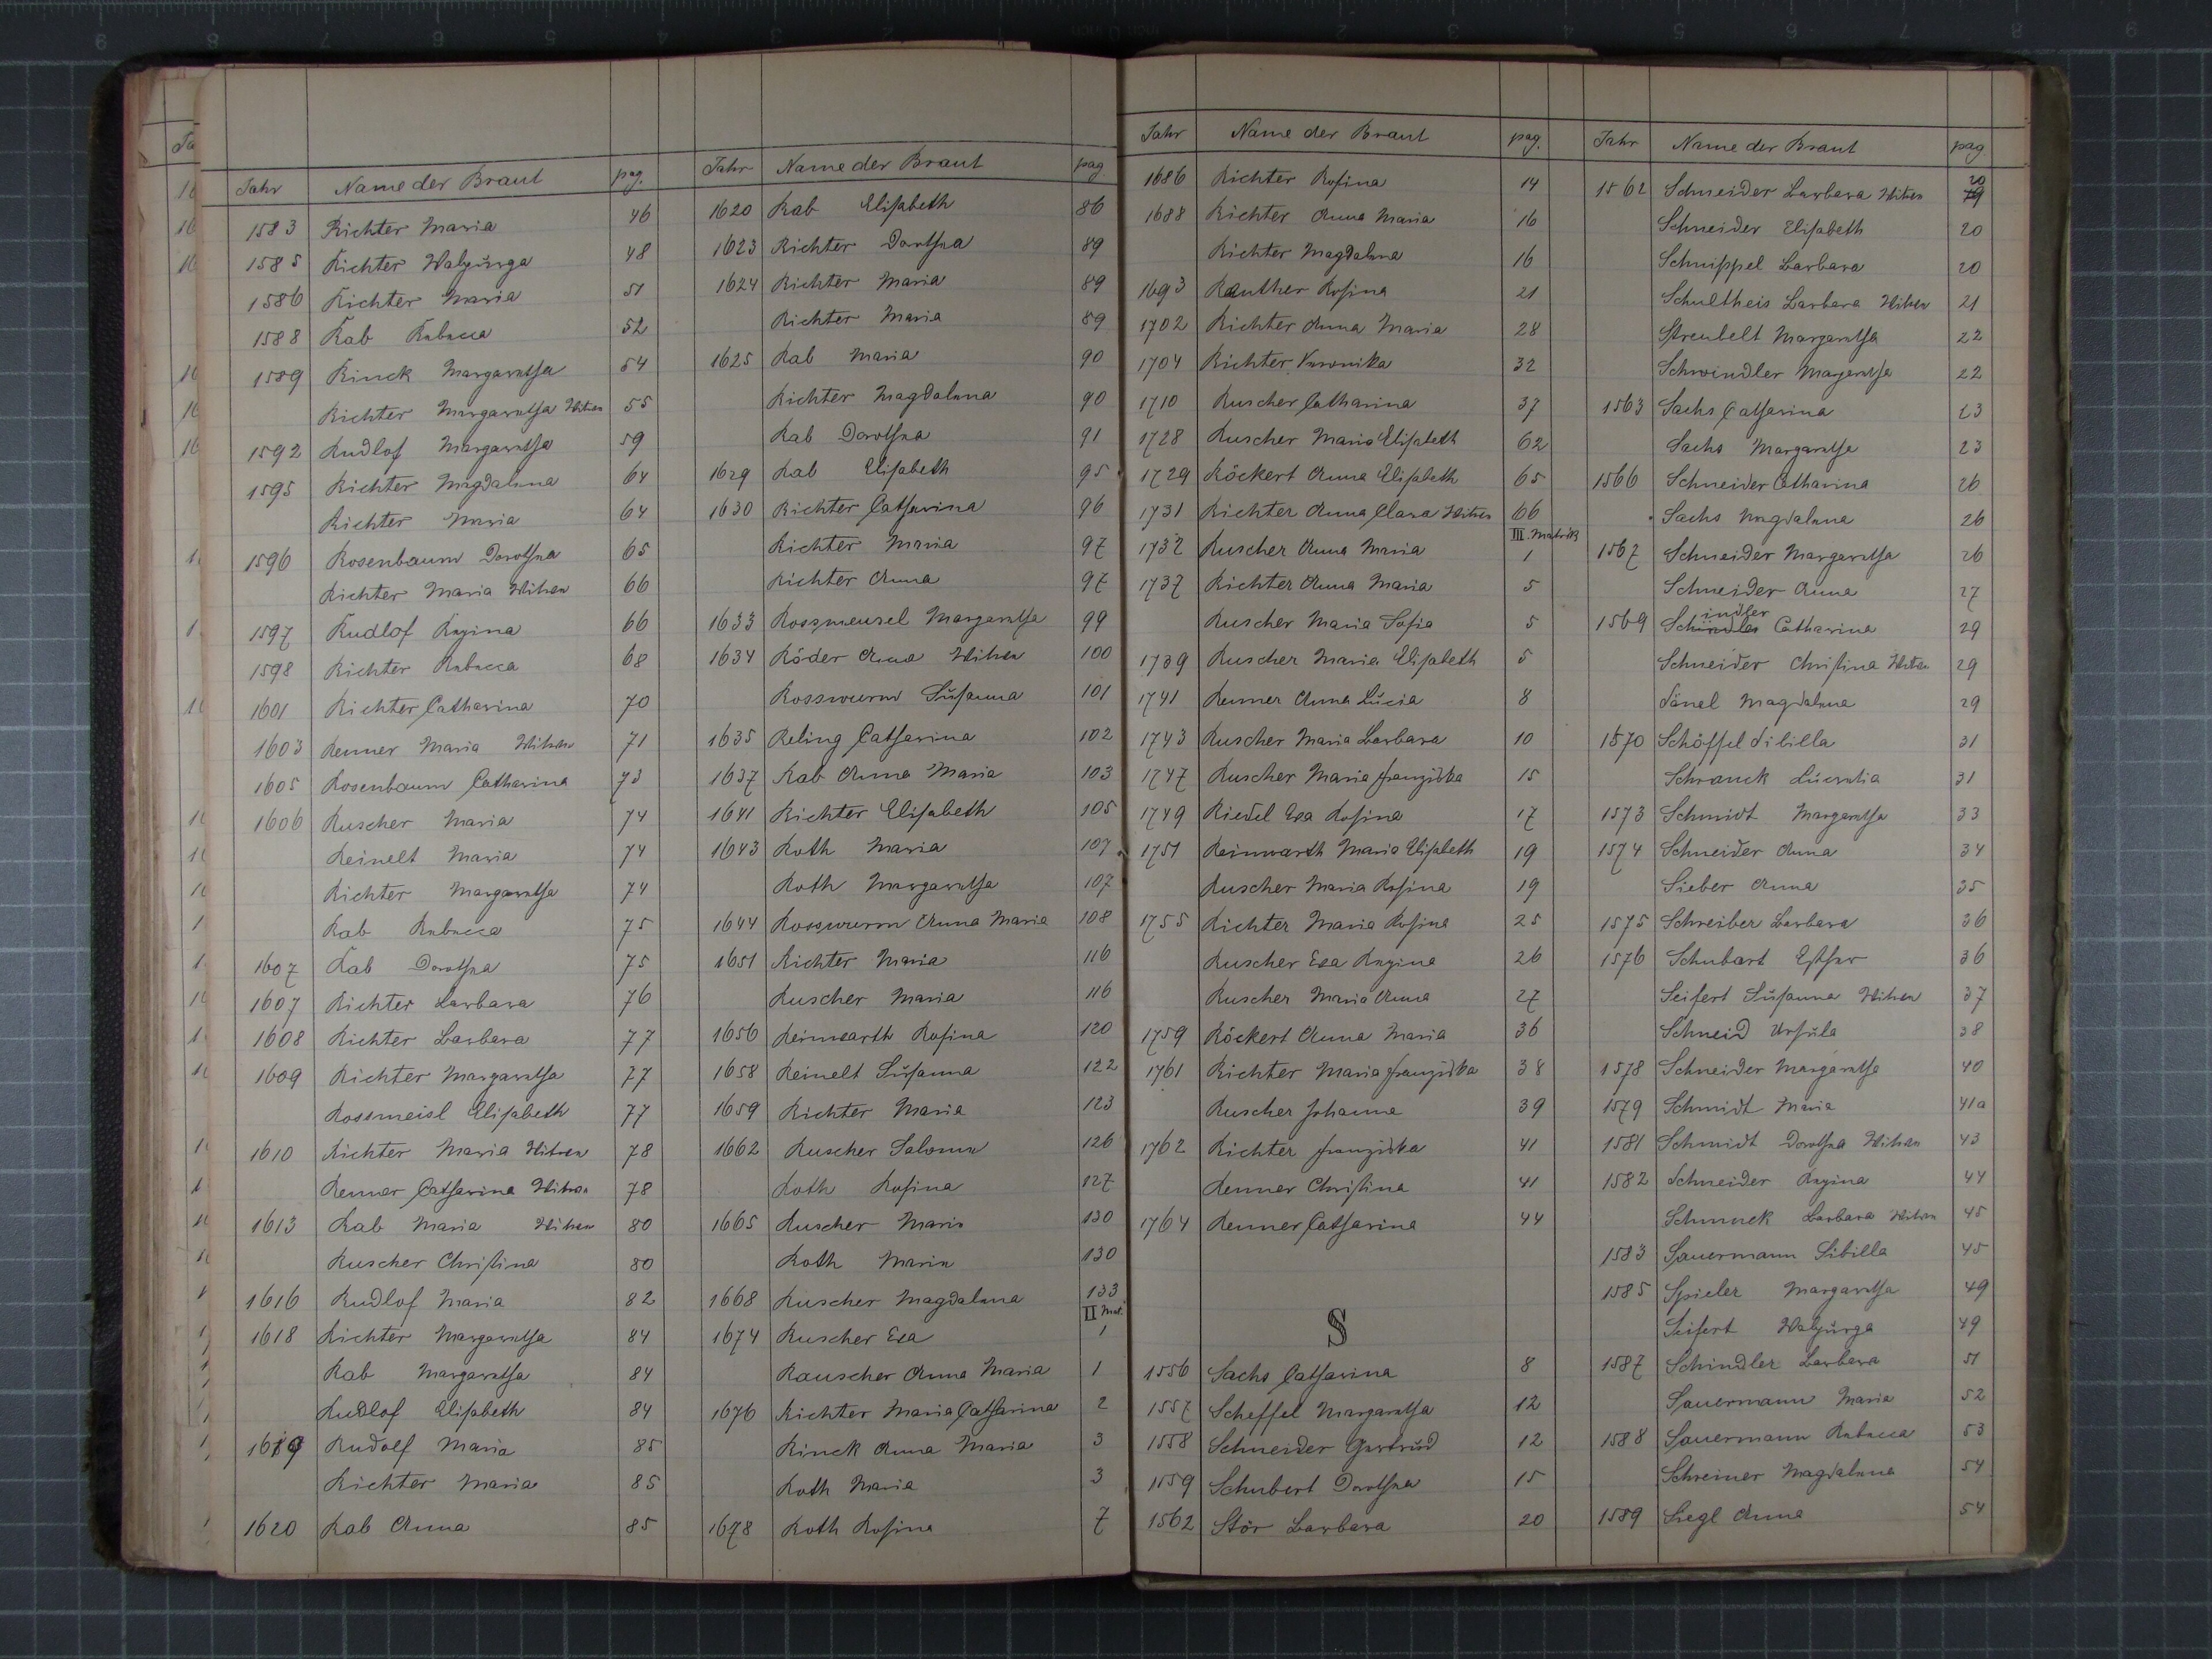 Jahr Name der Braut pag.
1583 Richter Maria 46
1585 Richter Walpurga 48
1586 Richter Maria 51
1588 Rab Rebecca 52
1589 Rinck Margaretha 54
Richter Margaretha Witwe 55
1592 Rudlof Margaretha 59
1595 Richter Magdalena 64
Richter Maria 64
1596 Rosenbaum Dorothea 65
Richter Maria Witwe 66
1597 Rudlof Regina 66
1598 Richter Rebecca 68
1601 Richter Catharina 70
1603 Renner Maria Witwe 71
1605 Rosenbaum Catharina 73
1606 Ruscher Maria 74
Reinelt Maria 74
Richter Margaretha 74
Rab Rebecca 75
1607 Rab Dorothea 75
1607 Richter Barbara 76
1608 Richter Barbara 77
1609 Richter Margaretha 77
Rossmeisl Elisabeth 77
1610 Richter Maria Witwe 78
Renner Catharina Witwe 78
1613 Rab Maria Witwe 80
Ruscher Christina 80
1616 Rudlof Maria 82
1618 Richter Margaretha 84
Rab Margaretha 84
Rudlof Elisabeth 84
1619 Rudolf Maria 85
Richter Maria 85
1620 Rab Anna 85
Jahr Name der Braut pag
1620 Rab Elisabeth 86
1623 Richter Dorothea 89
1624 Richter Maria 89
Richter Maria 89
1625 Rab Maria 90
Richter Magdalena 90
Rab Dorothea 91
1629 Rab Elisabeth 95
1630 Richter Catharina 96
Richter Maria 97
Richter Anna 97
1633 Rossmeusel Margaretha 99
1634 Röder Anna Witwe 100
Rosswurm Susanna 101
1635 Reling Catharina 102
1637 Rab Anna Maria 103
1641 Richter Elisabeth 105
1643 Roth Maria 107
Roth Margaretha 107
1644 Rosswurm Anna Maria 108
1651 Richter Maria 116
Ruscher Maria 116
1656 Reinwarth Rosina 120
1658 Reinelt Susanna 122
1659 Richter Maria 123
1662 Ruscher Salomen 126
Roth Rosina 127
1665 Ruscher Maria 130
Roth Maria 130
1668 Ruscher Magdalena 133
II Mat.
1674 Ruscher Eva 1
Rauscher Anna Maria 1
1676 Richter Maria Catharina 2
Rinck Anna Maria 3
Roth Maria 3
1678 Roth Rosina 7
Jahr Name der Braut pag.
1686 Richter Rosina 14
1688 Richter Anna Maria 16
Richter Magdalena 16
1693 Rauther Rosina 21
1702 Richter Anna Maria 28
1704 Richter Veronika 32
1710 Ruscher Catharina 37
1728 Ruscher Maria Elisabeth 62
1729 Röckert Anna Elisabeth 65
1731 Richter Anna Clara Witwe 66
III. Matrik
1732 Ruscher Anna Maria 1
1737 Richter Anna Maria 5
Ruscher Maria Sofia 5
1739 Ruscher Maria Elisabeth 5
1741 Renner Anna Lucia 8
1743 Ruscher Maria Barbara 10
1747 Ruscher Maria Franziska 15
1749 Riedel Eva Rosina 17
1751 Reinwarth Maria Elisabeth 19
Ruscher Maria Rosina 19
1755 Richter Maria Rosina 25
Ruscher Eva Regina 26
Ruscher Maria Anna 27
1759 Röckert Anna Maria 36
1761 Richter Maria Franziska 38
Ruscher Johanna 39
1762 Richter Franziska 41
Renner Christina 41
1764 Renner Catharina 44
S
1556 Sachs Catharina 8
1557 Scheffel Margaretha 12
1558 Schneider Gertrud 12
1559 Schubert Dorothea 15
1562 Stör Barbara 20
Jahr Name der Braut pag
1562 Schneider Barbara Witwe 20
Schneider Elisabeth 20
Schnippel Barbara 20
Schultheis Barbara Witwe 21
Streubelt Margaretha 22
Schwindler Margaretha 22
1563 Sachs Catharina 23
Sachs Margaretha 23
1566 Schneider Catharina 26
Sachs Magdalena 26
1567 Schneider Margaretha 26
Schneider Anna 27
1569 Schindler Catharina 29
Schneider Christina Witwe 29
Sänel Magdalena 29
1570 Schöffel Sibilla 31
Schranck Lucretia 31
1573 Schmidt Margaretha 33
1574 Schneider Anna 34
Sieber Anna 35
1575 Schreiber Barbara 36
1576 Schubart Esther 36
Seifert Susanna Witwe 37
Schneid Ursula 38
1578 Schneider Margaretha 40
1579 Schmidt Maria 41a
1581 Schmidt Dorothea Witwe 43
1582 Schneider Regina 44
Schmuck Barbara Witwe 45
1583 Sauermann Sibilla 45
1585 Spieler Margaretha 49
Seifert Walpurga 49
1587 Schindler Barbara 51
Sauermann Maria 52
1588 Sauermann Rebecca 53
Schreiner Magdalena 54
1589 Siegl Anna 54